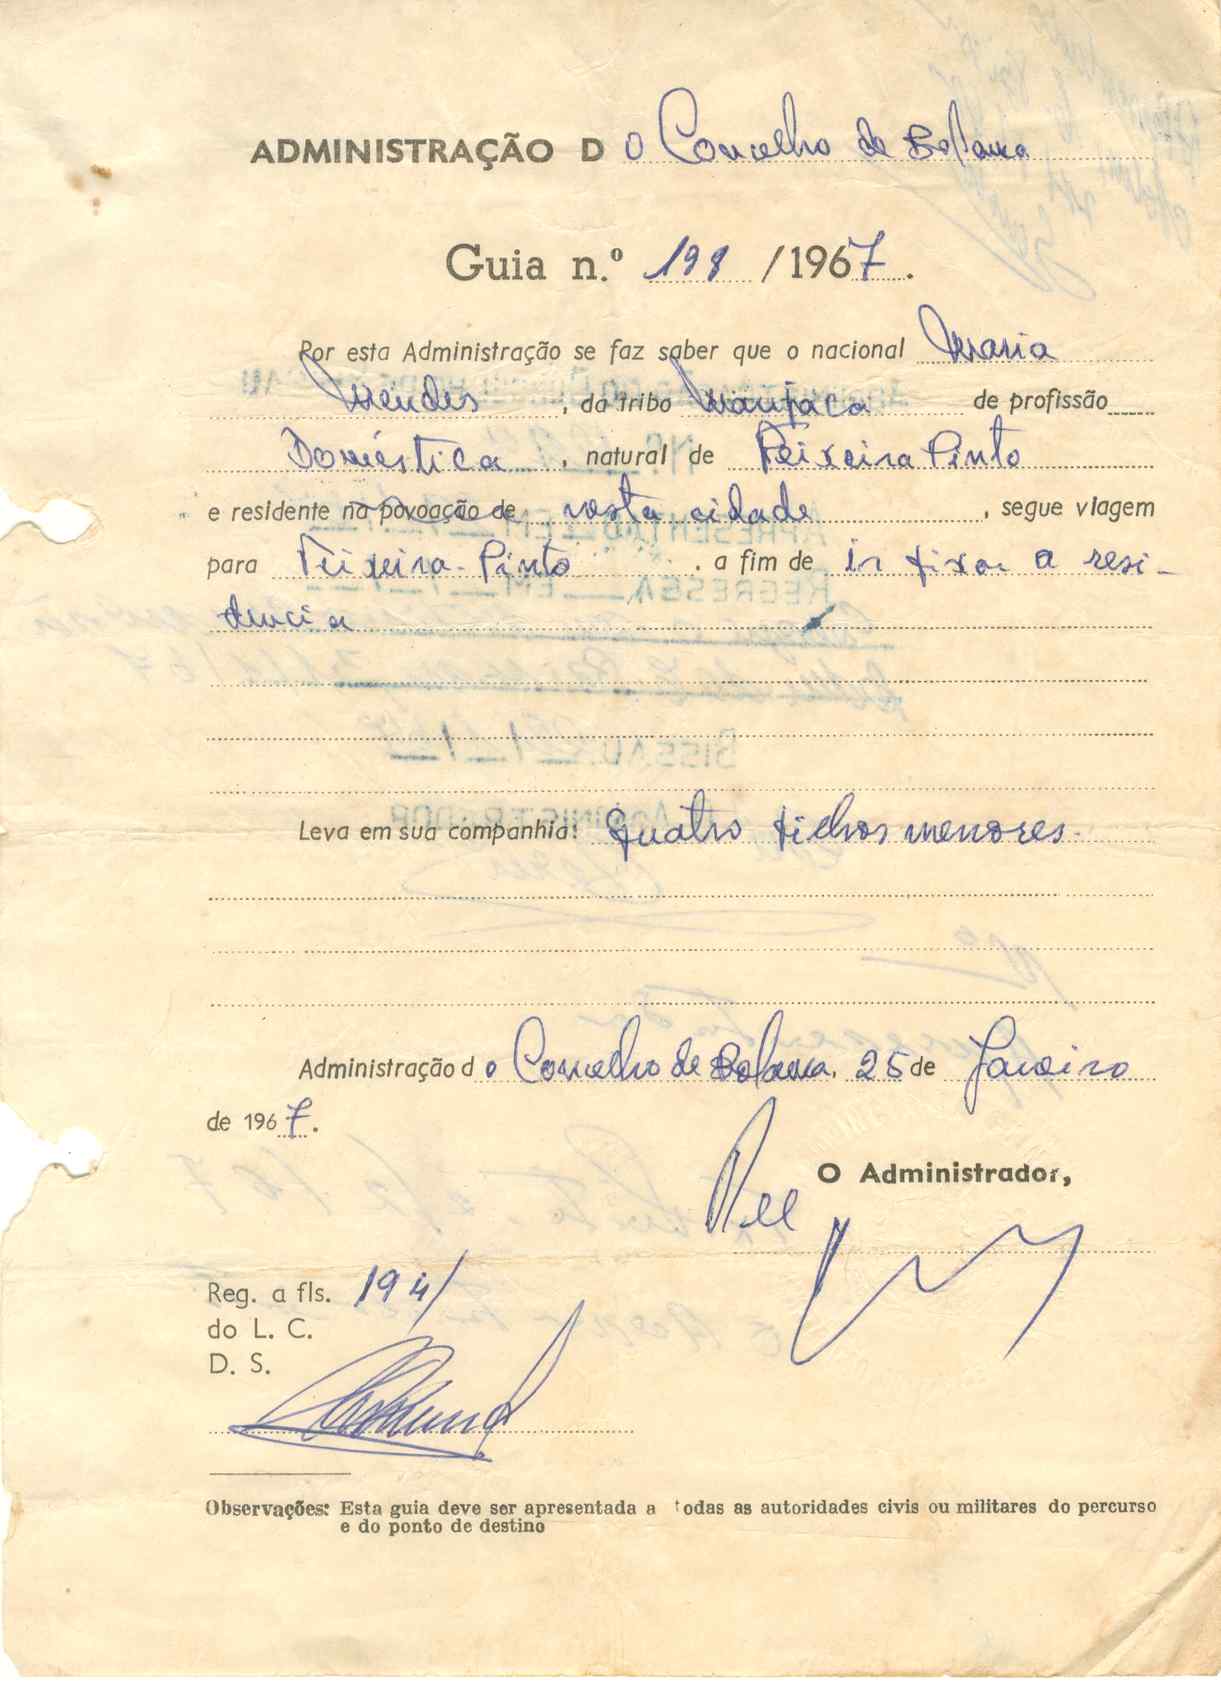 ADMINISTRAÇÃO D o Concelho de Bolama
Guia n.º 198 /1967.
Por esta Administração se faz saber que o nacional Maria
Mendes, da tribo Manjaca de profissão
Doméstica, natural de Teixeira Pinto
e residente na povoação de nesta cidade, segue viagem
para Teixeira-Pinto. a fim de ir fixar a resi-
dencia
Leva em sua companhia: Quatro filhos menores.
Administração do Concelho de Bolama, 25 de Janeiro
de 1967.
O Administrador,
Reg. a fls. 194/
do L. C.
D. S.
Observações: Esta guia deve ser apresentada a todas as autoridades civis ou militares do percurso
e do ponto de destino